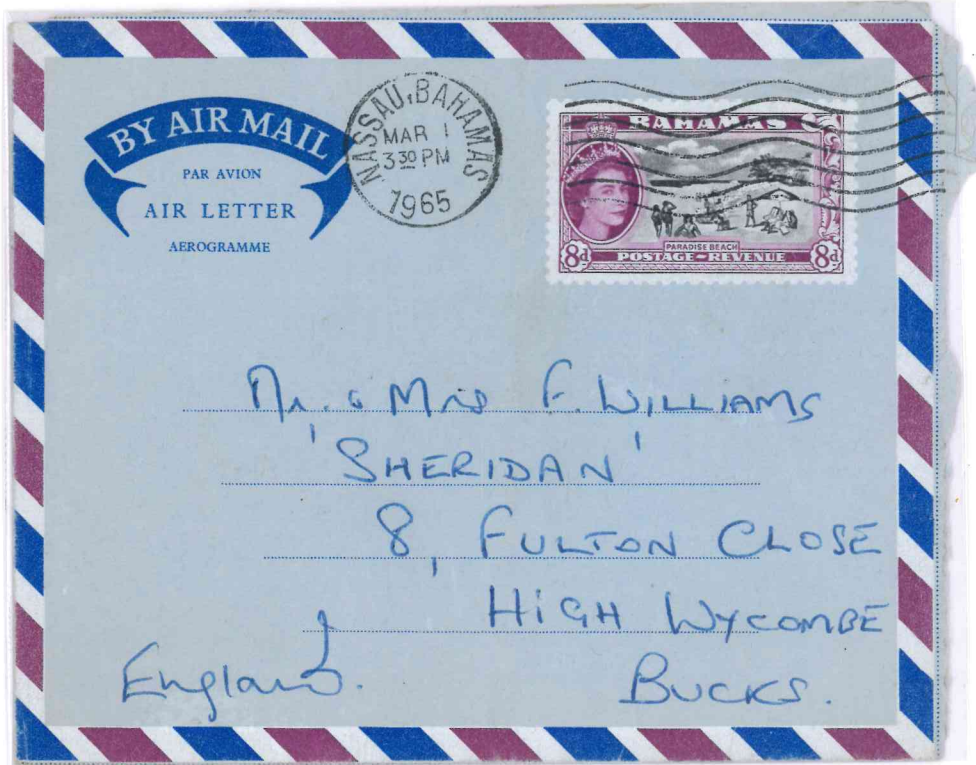 BY AIR MAIL
PAR AVION
AIR LETTER
AEROGRAMME
NASSAU, BAHAMAS
MAR 1
3 30 PM
1965
BAHAMAS
PARADISE BEACH
8d POSTAGE - REVENUE 8d
Mr. & Mrs F. WILLIAMS
'SHERIDAN'
8, FULTON CLOSE
HIGH WYCOMBE
England. BUCKS.